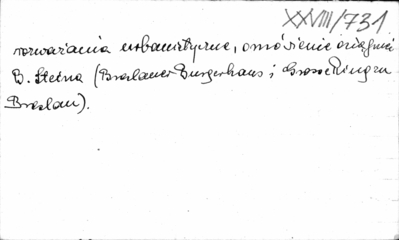 XXVIII/731
rozważania urbanistyczne, omówienie osiągnięć
B. Steina (Breslauer Burgerhaus i Grosse Ring zu
Breslau).